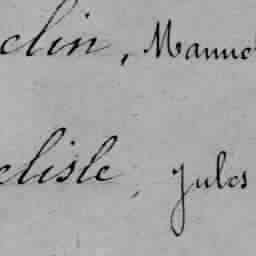 clin, Manuel
elisle, Jules